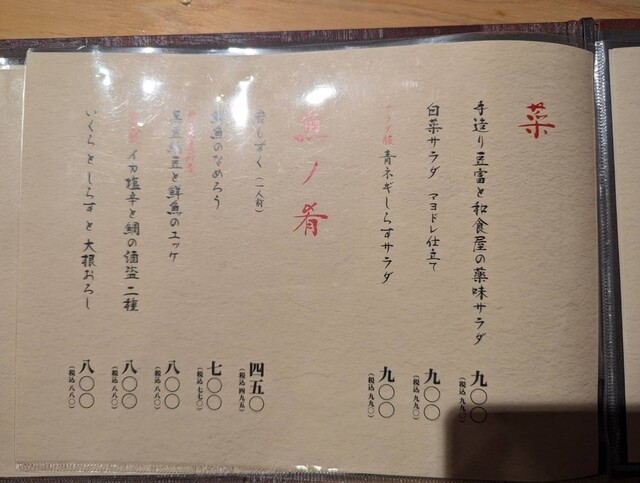 菜
手造り豆富と和食屋の薬味サラダ
九〇〇
(税込 九九〇)
白菜サラダ マヨドレ仕立て
九〇〇
(税込 九九〇)
青ネギしらすサラダ
九〇〇
(税込 九九〇)
魚ノ肴
岩もずく(一人前)
四五〇
(税込 四九五)
鮮魚のなめろう
七〇〇
(税込 七七〇)
納豆と鮮魚のユッケ
八〇〇
(税込 八八〇)
イカ塩辛と鯛の酒盗 二種
八〇〇
(税込 八八〇)
いくらとしらすと大根おろし
八〇〇
(税込 八八〇)